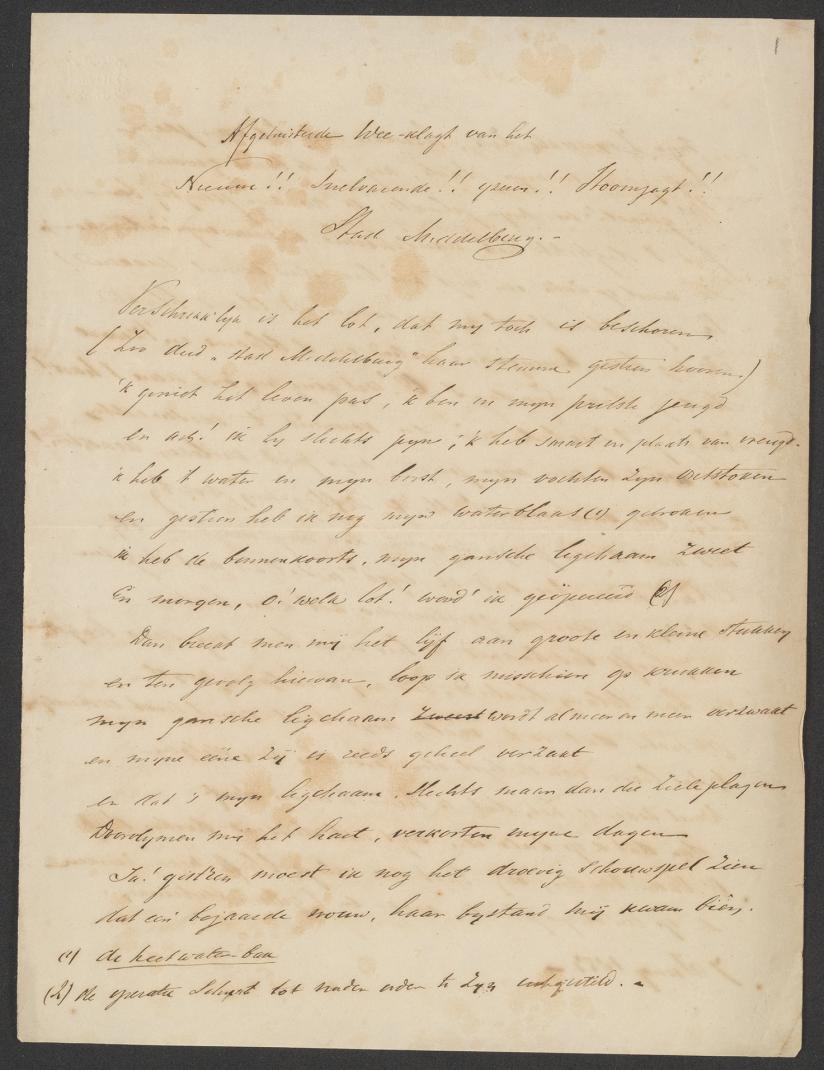 1
Afgeluisterde Wee-klagt van het
Nieuw!! Snelvarende!! yzeren!! Stoomjagt!!
Stad Middelburg.-
Verschrikk'lyk is het lot, dat my toch is beschoren
(Zoo deed „Stad Middelburg" haar stemme gist'ren hooren)
'k geniet het leven pas, ik ben in myn prilste jeugd
en ach! ik ly slechts pyn; 'k heb smart in plaats van vreugd.
'k heb 't water in myn borst, myn vochten zyn ontstoken
en gist'ren heb ik nog myn waterblaas (1) gebroken
ik heb de binnenkoorts, myn gansche ligchaam zweet
En morgen, o! welk lot! word' ik geöpereerd (2)
Dan breekt men mij het lijf aan groote en kleine stukken
en ten gevolg hiervan, loop ik misschien op krukken
myn gansche ligchaam zweert wordt al meer en meer verzwakt
en myne eene zij is reeds geheel verzakt
en dat 's myn ligchaam slechts maar dan die zieleplagen
Doorlymen mij het hart, verkorten myne dagen
Ja! gist'ren moest ik nog het droevig schouwspel zien
dat een bejaarde vrouw, haar bystand mij kwam biên.
(1) de heetwater-bak
(2) de operatie schynt tot nader order te zyn uitgesteld.-